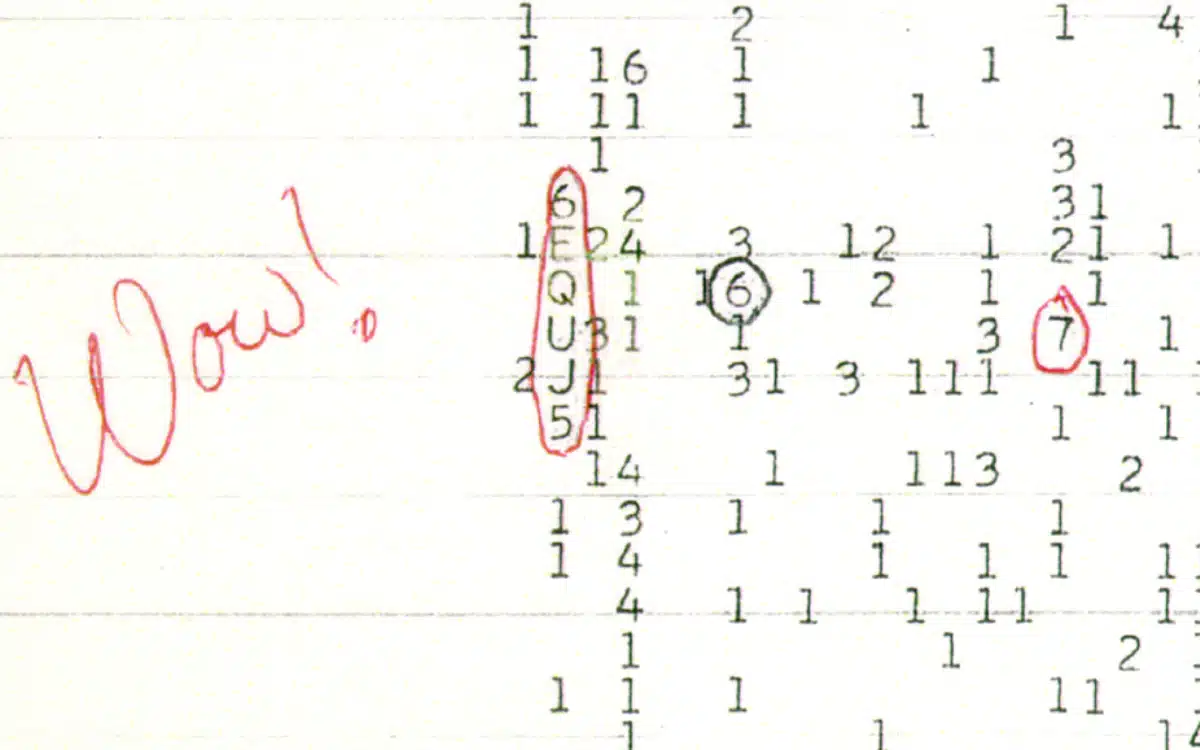 1 2 1 4
1 16 1 1
1 11 1 1 1
1 3
6 2 31
1E24 3 12 1 21 1
Wow!
Q 1 16 1 2 1 1 1
U31 1 3 7 1
2J1 31 3 111 11
51 1 1
14 1 113 2
1 3 1 1 1
1 4 1 1 1 1
4 1 1 1 11 1
1 1 2
1 1 1 11
1 1 14